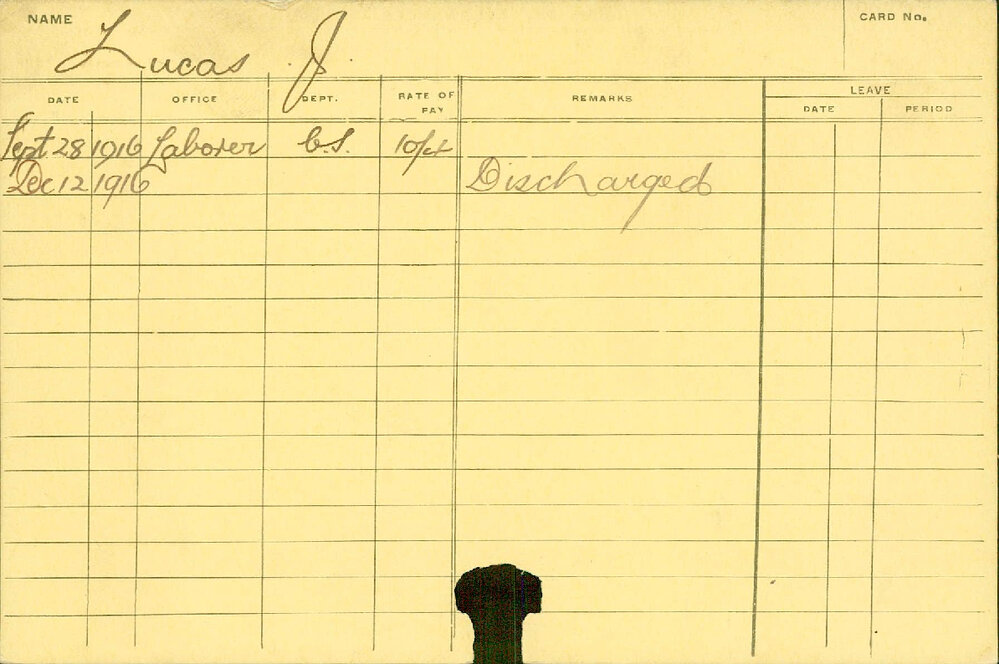 NAME Lucas J. CARD No.
DATE OFFICE DEPT. RATE OF PAY REMARKS LEAVE
DATE PERIOD
Sept 28 1916 Laborer C.S. 10/4
Dec 12 1916 Discharged